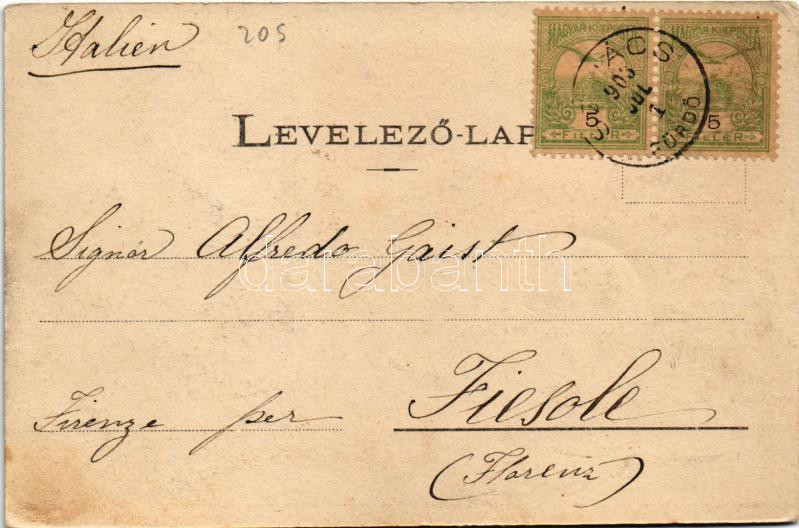 Italien
205
LEVELEZŐ-LAP
MAGYAR KIR. POSTA
MAGYAR KIR. POSTA
5
FILLÉR
5
FILLÉR
ÁCS
903
JUL
1
FÜRDŐ
Signór Alfredo Gaist
darabanth
Firenze per Fiesole
(Florenz)